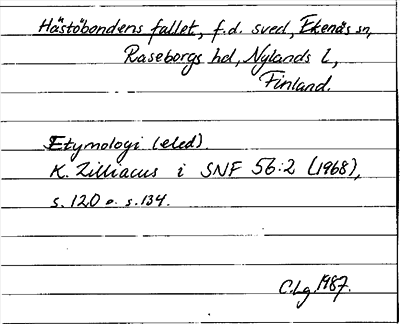 Hästöbondens fallet, f.d. sved, Ekenäs sn,
Raseborgs hd, Nylands l,
Finland.
Etymologi (eled).
K. Zilliacus i SNF 56:2 (1968),
s. 120 o. s. 134.
C. Lg. 1987.